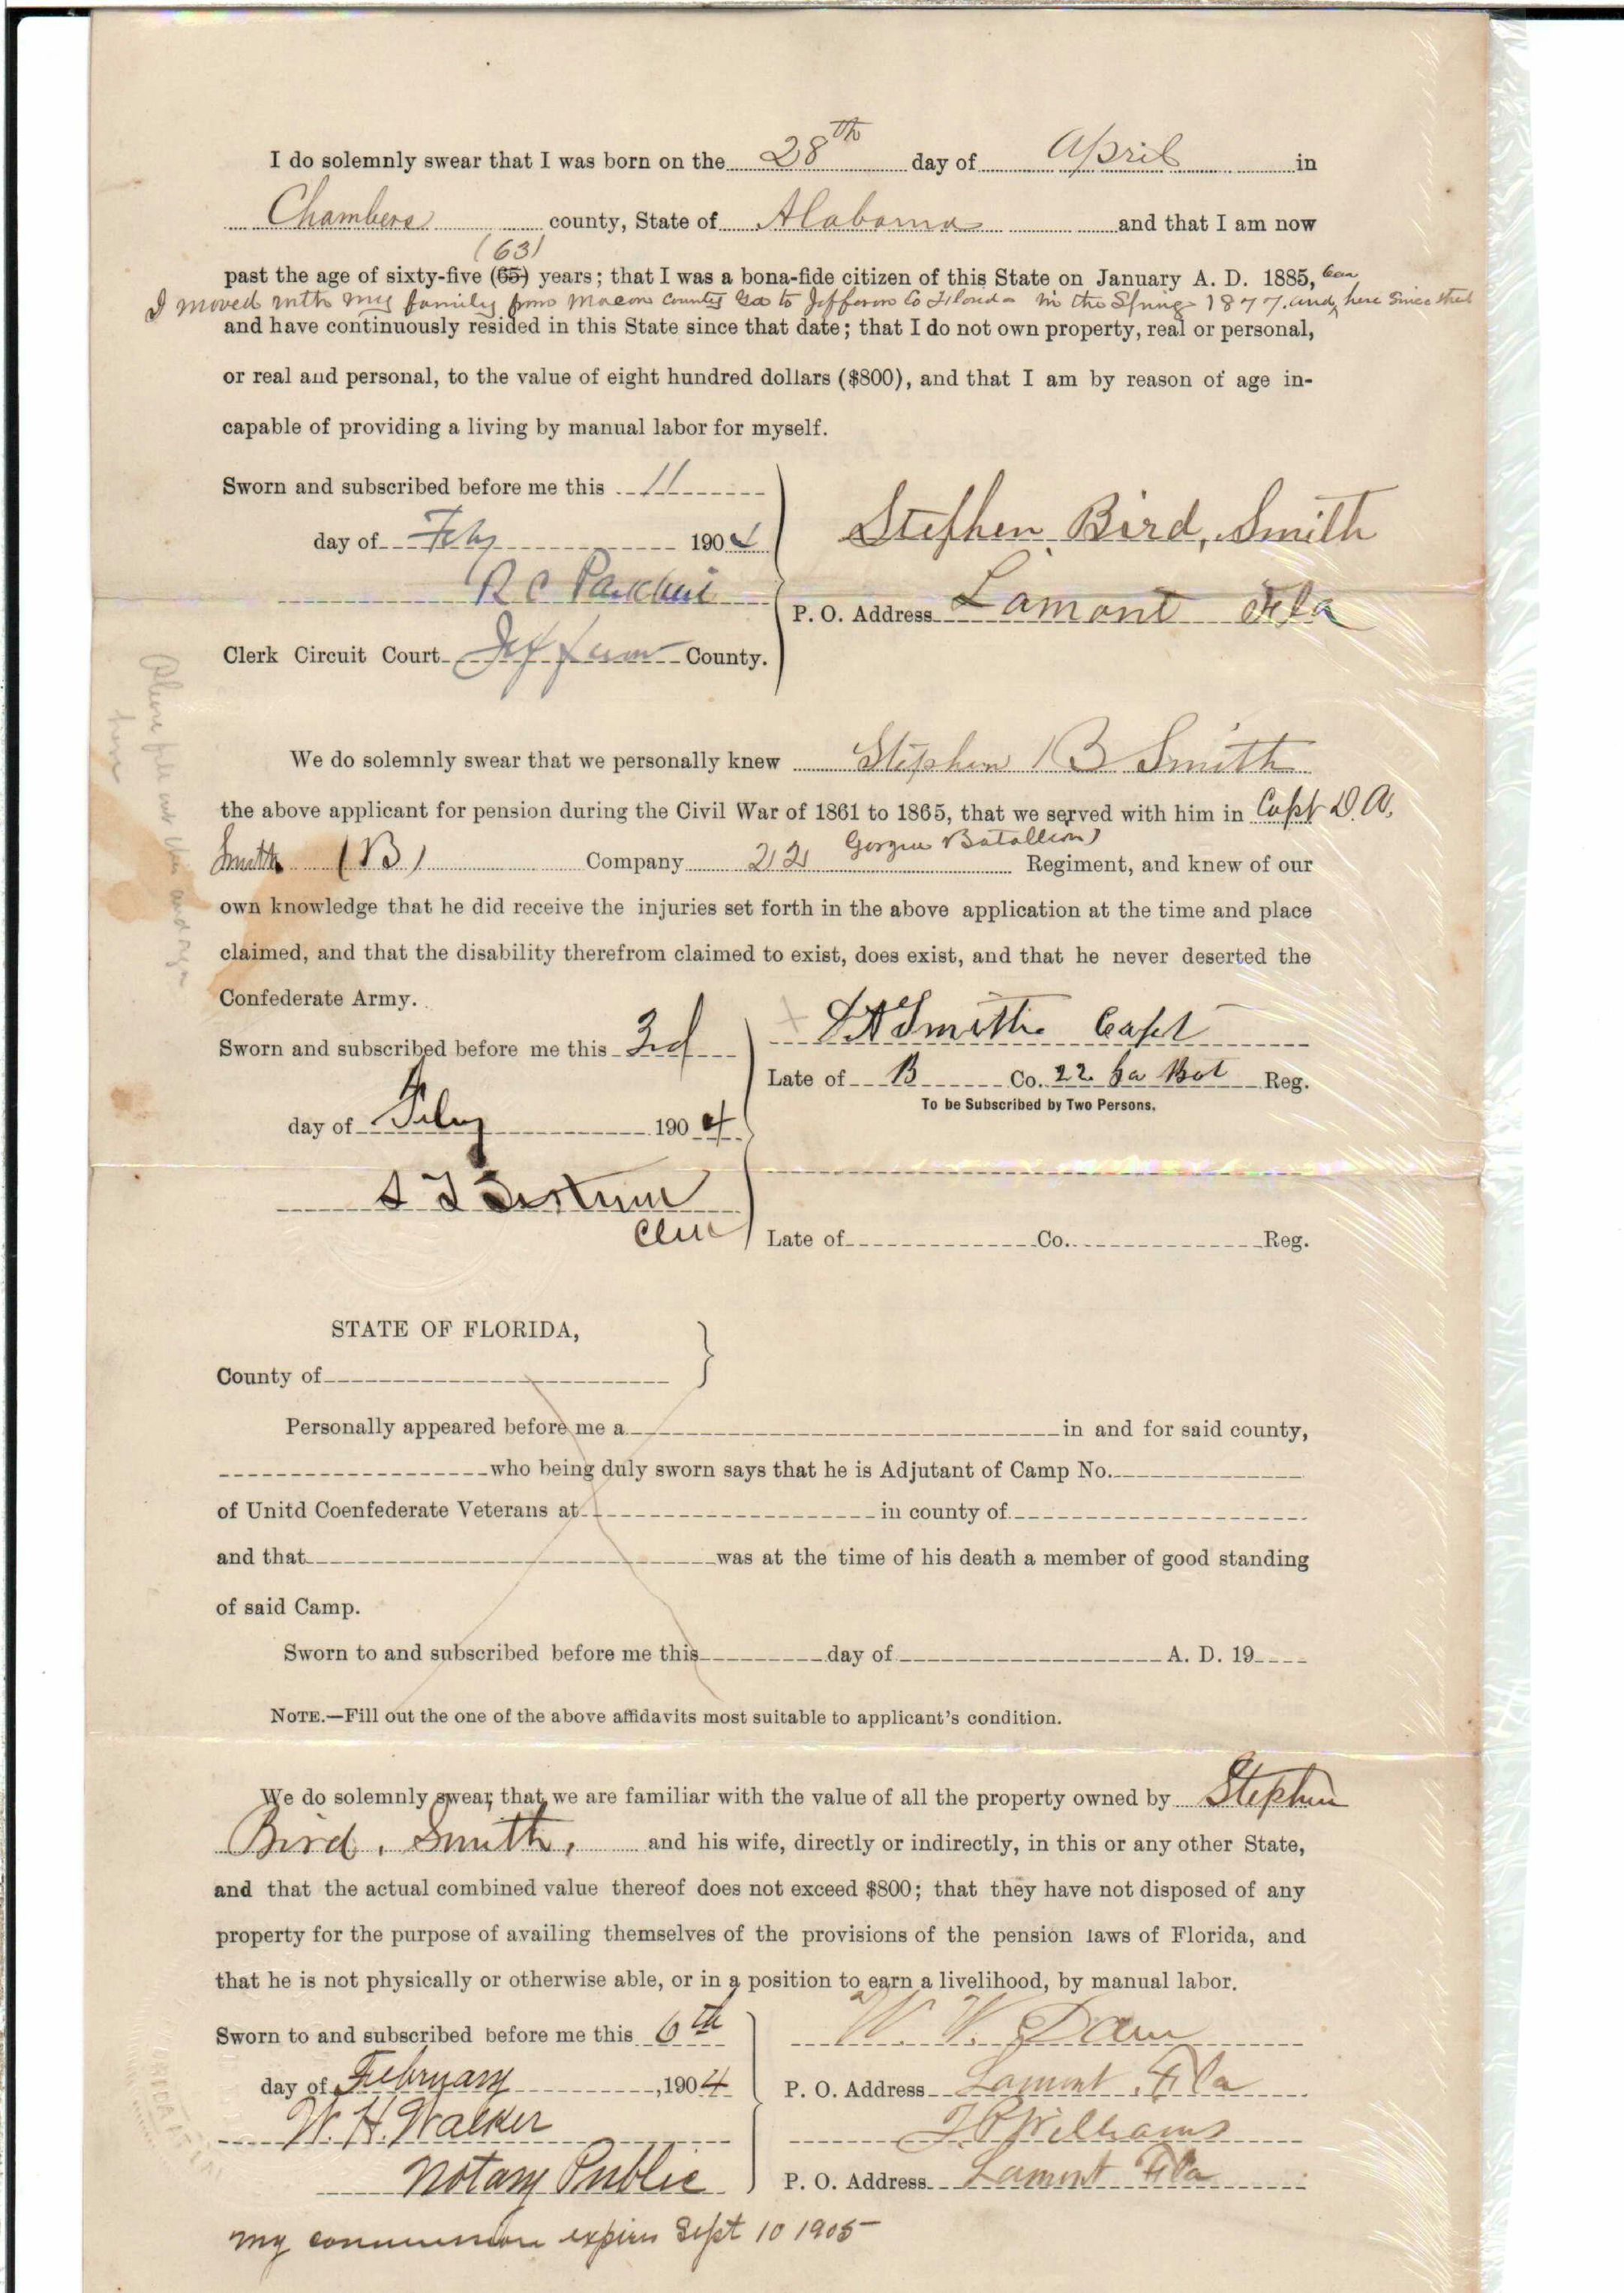 I do solemnly swear that I was born on the 28th day of April in
Chambers county, State of Alabama and that I am now
(63)
past the age of sixty-five (65) years; that I was a bona-fide citizen of this State on January A. D. 1885,
I moved with my family from Macon County Ga to Jefferson Co Florida in the Spring 1877. and here since that
and have continuously resided in this State since that date; that I do not own property, real or personal,
or real and personal, to the value of eight hundred dollars ($800), and that I am by reason of age in-
capable of providing a living by manual labor for myself.
Sworn and subscribed before me this 11
day of Feby 1904
Stephen Bird, Smith
R C
P. O. Address Lamont Fla
Clerk Circuit Court Jefferson County.
We do solemnly swear that we personally knew Stephen B Smith
the above applicant for pension during the Civil War of 1861 to 1865, that we served with him in Capt D. A.
Smith (B) Company 22 Gorgia Batallion) Regiment, and knew of our
own knowledge that he did receive the injuries set forth in the above application at the time and place
claimed, and that the disability therefrom claimed to exist, does exist, and that he never deserted the
Confederate Army.
Sworn and subscribed before me this 3rd
D A Smith Capt
Late of B Co. 22 Ga Bat Reg.
To be Subscribed by Two Persons.
day of Feby 1904
Late of Co. Reg.
STATE OF FLORIDA,
County of
Personally appeared before me a in and for said county,
who being duly sworn says that he is Adjutant of Camp No.
of Unitd Coenfederate Veterans at in county of
and that was at the time of his death a member of good standing
of said Camp.
Sworn to and subscribed before me this day of A. D. 19
NOTE.—Fill out the one of the above affidavits most suitable to applicant's condition.
We do solemnly swear, that we are familiar with the value of all the property owned by Stephen
Bird, Smith, and his wife, directly or indirectly, in this or any other State,
and that the actual combined value thereof does not exceed $800; that they have not disposed of any
property for the purpose of availing themselves of the provisions of the pension laws of Florida, and
that he is not physically or otherwise able, or in a position to earn a livelihood, by manual labor.
Sworn to and subscribed before me this 6th
W. W.
day of February, 1904
P. O. Address Lamont, Fla
W. H. Walker
Williams
Notary Public
P. O. Address Lamont Fla
my commission expires Sept 10 1905